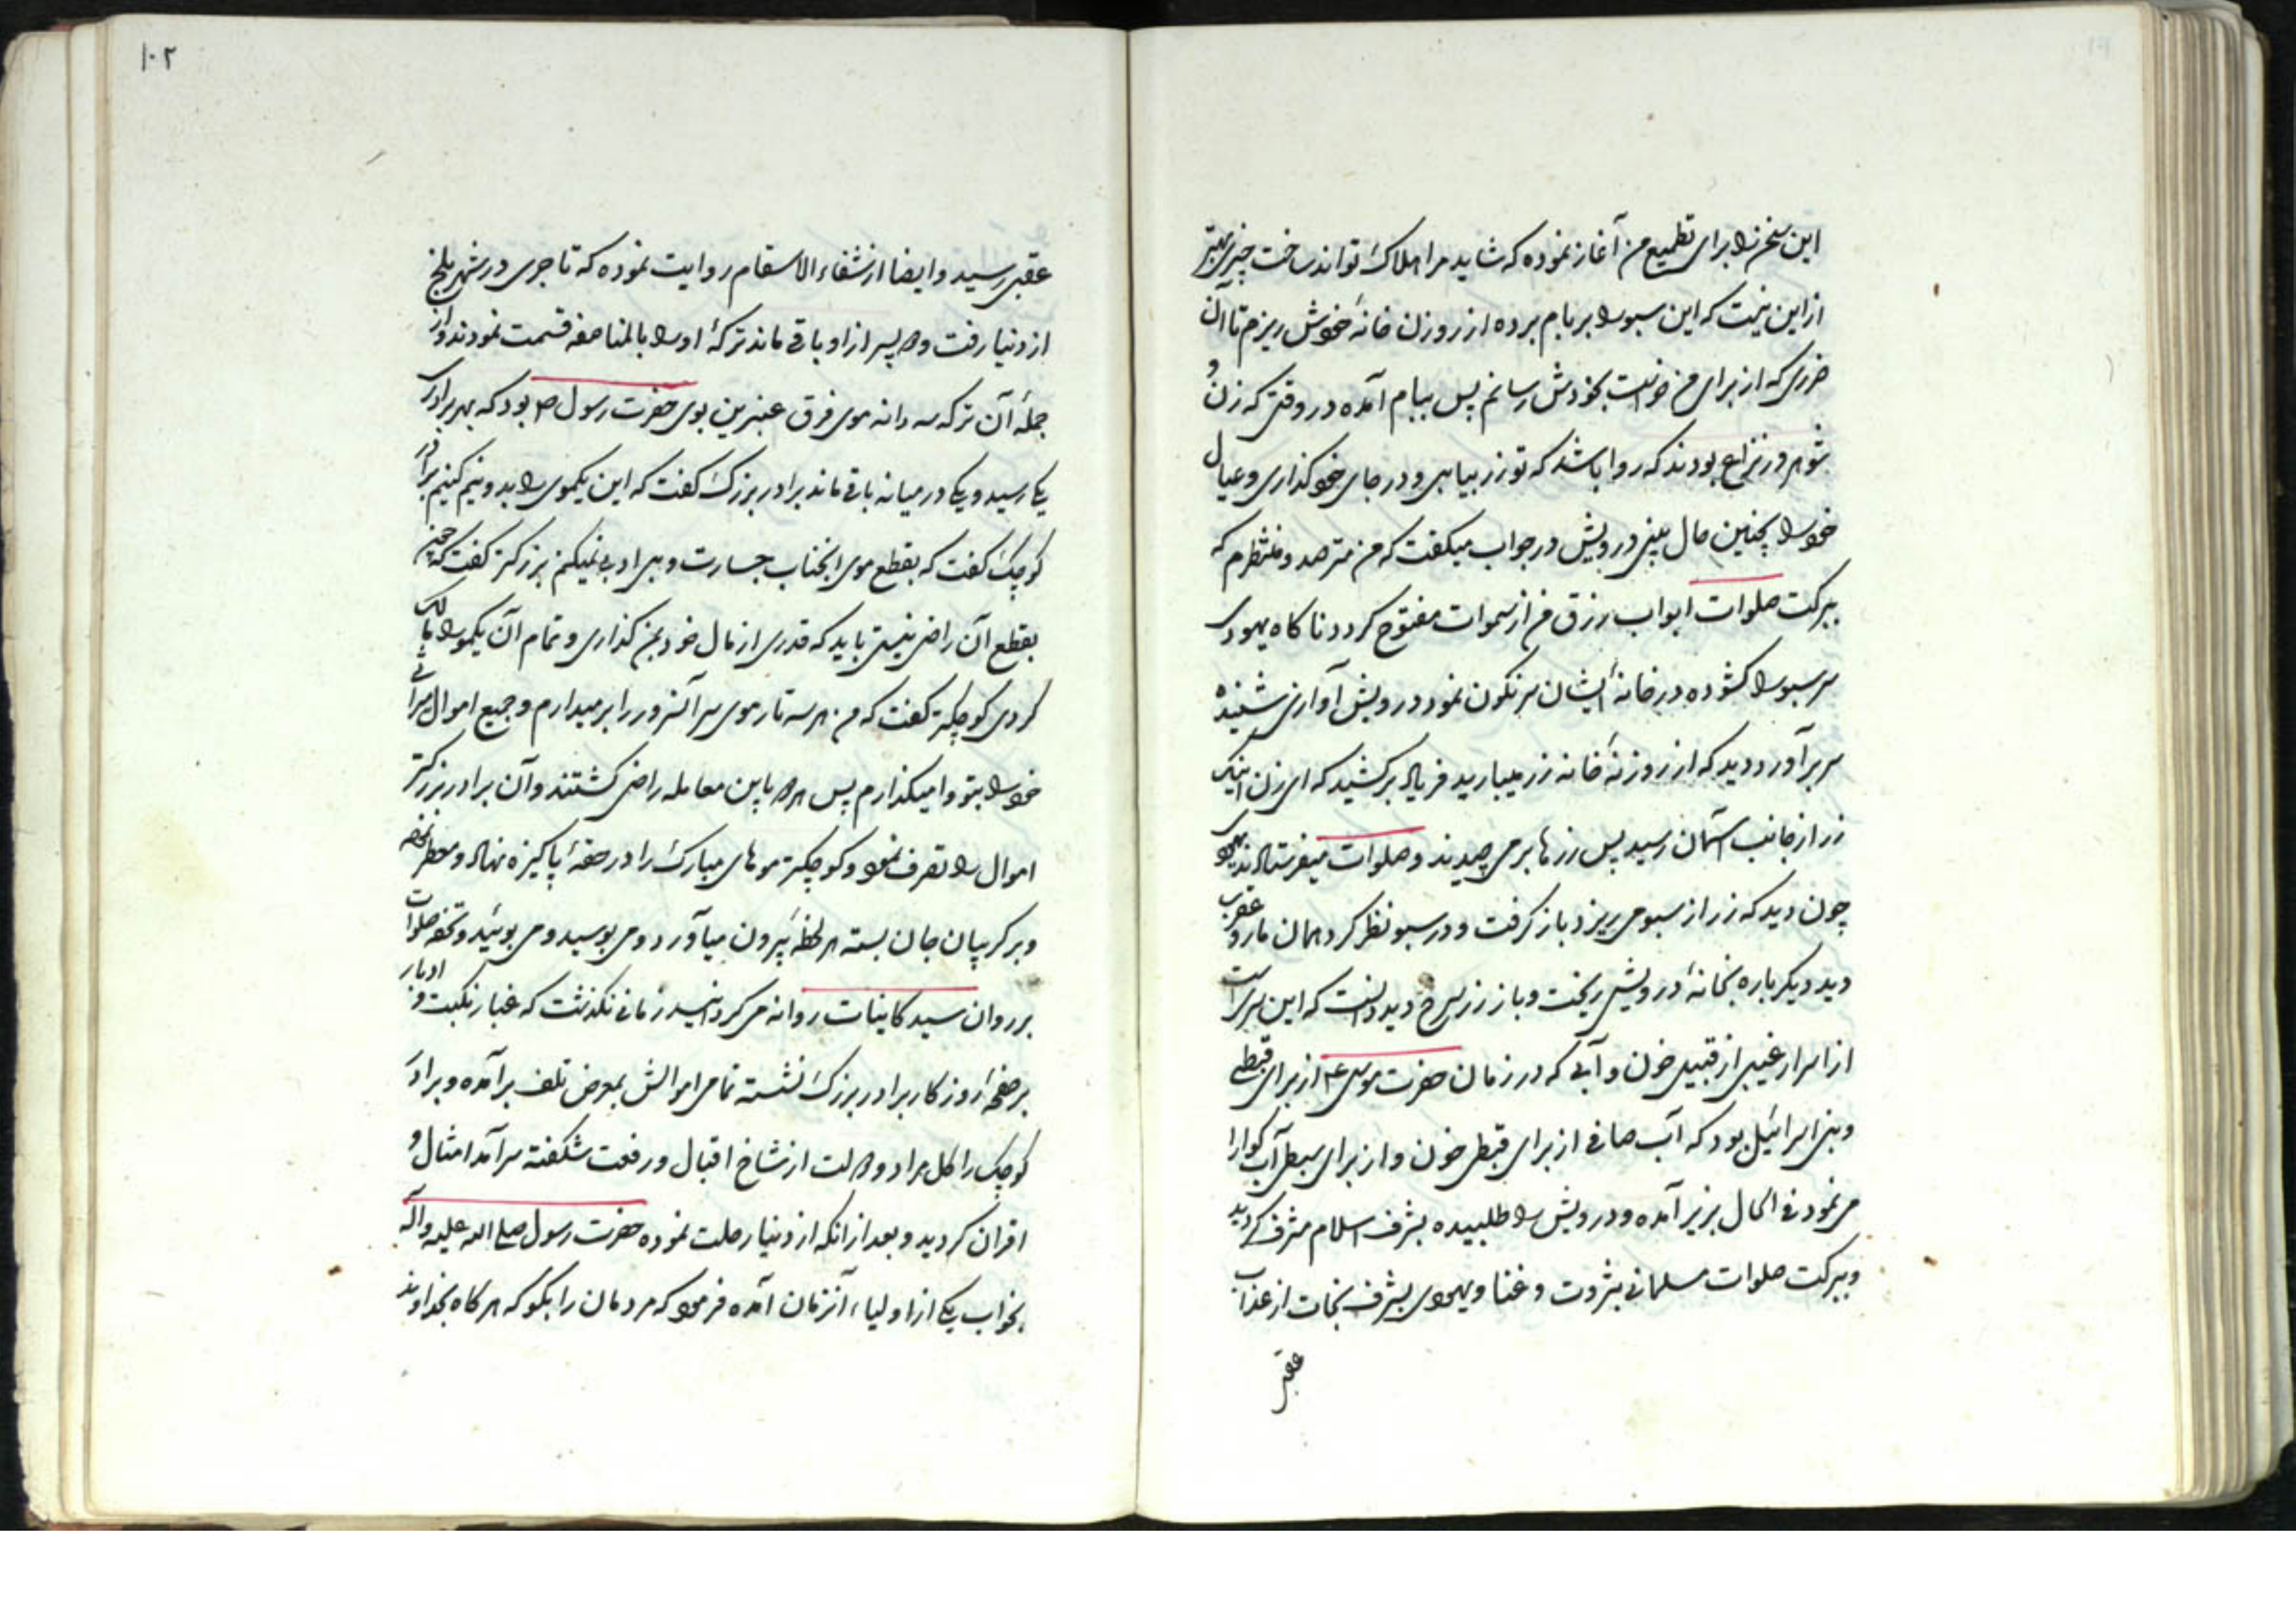 این سخن را برای تطمیع من آغاز نموده که شاید مرا هلاک تواند ساخت چیزی بهتر
از این نیست که این سبو را بر بام برده از روزن خانهٔ خودش ریزم تا آن
ضرری که از برای من خواست بخودش رسانم پس ببام آمده در وقتی که زن و
شوهر در نزاع بودند که روا باشد که تو زر بیابی و در جای خود گذاری و عیال
خود را بچنین حال بینی درویش در جواب میگفت که من مترصد و منتظرم که
ببرکت صلوات ابواب رزق من از سموات مفتوح گردد ناگاه یهودی
سر سبو را گشوده در خانهٔ ایشان سرنگون نمود درویش آوازی شنیده
سر برآورد دید که از روزنهٔ خانه زر میبارید فریاد برکشید که ای زن اینک
زر از جانب آسمان رسید پس زرها برمی چیدند و صلوات میفرستادند یهودی
چون دید که زر از سبو می ریزد باز گرفت و در سبو نظر کرد همان مار و عقرب
دید دیگر باره بخانهٔ درویش ریخت و باز زر سرخ دید دانست که این سریست
از اسرار غیبی از قبیل خون و آبی که در زمان حضرت موسی ع از برای قبطی
و بنی اسرائیل بود که آب صافی از برای قبطی خون و از برای سبطی آب گوارا
می نمود فی الحال بزیر آمده و درویش را طلبیده بشرف اسلام مشرف گردید
و ببرکت صلوات مسلمانی بثروت و غنا و یهودی بشرف نجات از عذاب
عقبی
۱۰۲
عقبی رسید و ایضا از شفاء الاسقام روایت نموده که تاجری در شهر بلخ
از دنیا رفت و دو پسر از او باقی ماند ترکهٔ او را بالمناصفه قسمت نمودند و از
جملهٔ آن ترکه سه دانه موی فرق عنبرین بوی حضرت رسول ص بود که بهر برادری
یکی رسید و یکی در میانه باقی ماند برادر بزرگ گفت که این یکموی را بدو نیم کنیم برادر
کوچک گفت که بقطع موی انجناب جسارت و بی ادبی نمیکنم بزرگتر گفت که چون
بقطع آن راضی نیستی باید که قدری از مال خود بمن گذاری و تمام آن یکمو را مالک
گردی کوچکتر گفت که من هر سه تار موی سر آنسرور را برمیدارم و جمیع اموال میراثی
خود را بتو وامیگذارم پس هر دو باین معامله راضی گشتند و آن برادر بزرگتر
اموال را تصرف نمود و کوچکتر موهای مبارک را در حقهٔ پاکیزه نهاد و معطر نموده
و بر گریبان جان بسته هر لحظه بیرون میآورد و می بوسید و می بوئید و تحفه صلوات
بر روان سید کاینات روانه می گردانید زمانی نگذشت که غبار نکبت و ادبار
بر صفحهٔ روزگار برادر بزرگ نشسته تمامی اموالش بمعرض تلف برآمده و برادر
کوچک را گل مراد و دولت از شاخ اقبال و رفعت شکفته سرآمد امثال و
اقران گردید و بعد از انکه از دنیا رحلت نموده حضرت رسول صلی الله علیه و آله
بخواب یکی از اولیاء آنزمان آمده فرمود که مردمان را بگو که هر گاه بخداوند